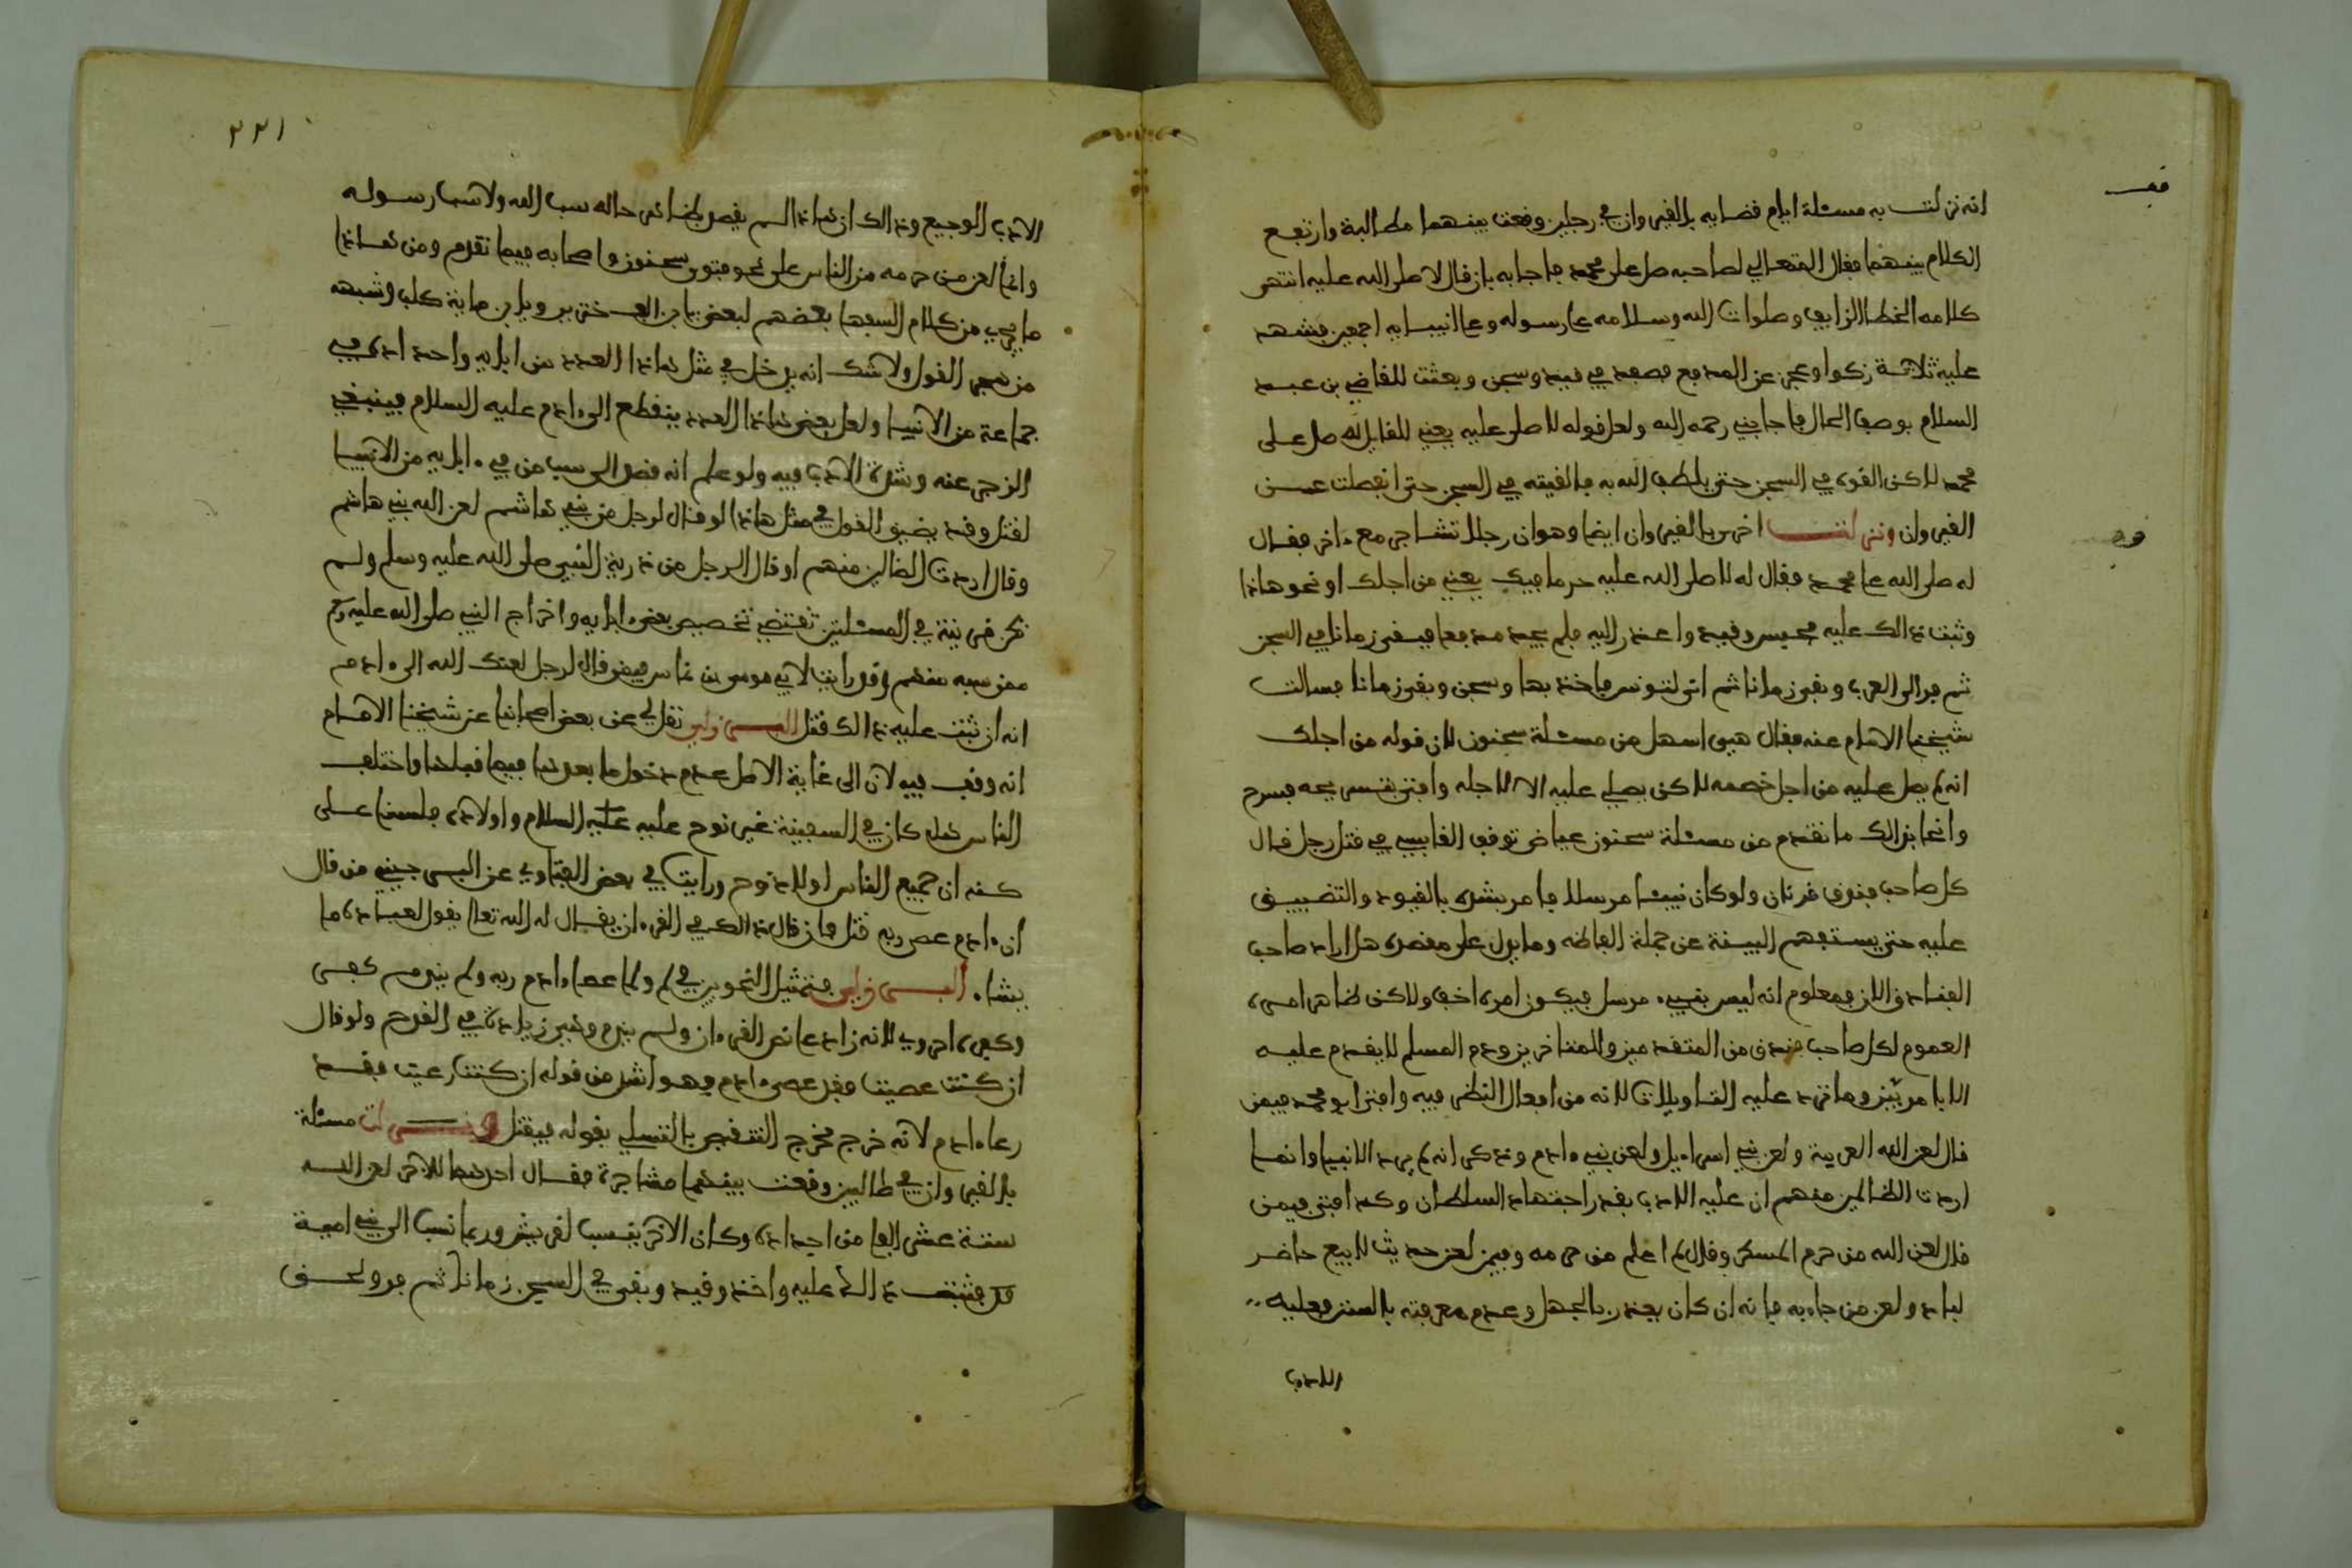 قف
انه نزلت به مسئلة ايام قضايه بالقيروان في رجلين وقعت بينهما مطالبة وارتفع
الكلام بينهما فقال المتعالي لصاحبه صل على محمد فاجابه بان قال لا صلى الله عليه انتهى
كلامه الخطا الزايف وصلوات الله وسلامه على رسوله وعلى انبيايه اجمعين فشهد
عليه ثلاثة زكوا وعجز عن المدفع فصفد في قيد وسجن وبعثت للقاضي بن عبد
السلام بوصف الحال فاجابني رحمه الله ولعل قوله لا صلى عليه يعني للقايل له صل على
محمد لاكن القوه في السجن حتى يلطف الله به فالفيته في السجن حتى انفصلت عن
القيروان ونزلت اخرى بالقيروان ايضا وهو ان رجلا تشاجر مع ءاخر فقال
له صلى الله على محمد فقال له لا صلى الله عليه حرما فيك يعني من اجلك او نحو هاذا
وثبت ذالك عليه فحبس وقيد واعذر اليه فلم يجد مدفعا فبقى زمانا في السجن
ثم فر الى العرب وبقى زمانا ثم اتى لتونس فاخذ بها وسجن وبقى زمانا فسالت
شيخنا الامام عنه فقال هي اسهل من مسئلة سحنون لان قوله من اجلك
انه لم يصل عليه من اجل خصمه لاكن يصلي عليه الا لاجله وافتى بتسريحه فسرح
وانما بذالك ما تقدم من مسئلة سحنون عياض توقف القابسي في قتل رجل قال
كل صاحب فندق قرنان ولو كان نبيئا مرسلا فامر بشده بالقيود والتضييق
عليه حتى يستفهم البينة عن جملة الفاظه وما يدل على مقصده هل اراد صاحب
الفنادق الان فمعلوم انه ليس بنبيء مرسل فيكون امره اخف ولاكن ظاهر امره
العموم لكل صاحب فندق من المتقدمين والمتاخرين ودم المسلم لا يقدم عليه
الا بامر بين وما ترد عليه التاويلات لانه من افعال النظر فيه وافتى ابو محمد فيمن
قال لعن الله العربية ولعن بني اسراءيل ولعن بني ءادم وذكر انه لم يرد الانبيا وانما
اردت الظالمين منهم ان عليه الادب بقدر اجتهاد السلطان وكذا افتى فيمن
قال لعن الله من حرم المسكر وقال لم اعلم من حرمه وفيمن لعن حديث لا يبيع حاضر
لباد ولعن من جاء به فانه ان كان يعذر بالجهل وعدم معرفته بالسنن فعليه
الادب
٢٢١
الادب الوجيع وذالك ان هاذا لم يقصد بظاهر حاله سب الله ولا سب رسوله
وانما لعن من حرمه من الناس على نحو فتوى سحنون واصحابه فيما تقدم ومن هاذا
ما يجري من كلام السفها بعضهم لبعض يا بن الف خنزير ويا بن ماية كلب وشبهه
من هجر القول ولا شك انه يدخل في مثل هاذا العدد من ابايه واحد ادي في
جماعة من الانبيا ولعل بعض هاذا العدد ينقطع الى ءادم عليه السلام فينبغي
الزجر عنه وشدة الادب فيه ولو علم انه قصد الى سب من في ءابايه من الانبيا
لقتل وقد يضيق القول في مثل هاذا لو قال لرجل من بني هاشم لعن الله بني هاشم
وقال اردت الظالمين منهم او قال الرجل من ذرية النبي صلى الله عليه وسلم ولم
تكن قرينة في المسئلتين تقتضي تخصيص بعض ءابايه واخراج النبي صلى الله عليه وسلم
ممن سبه منهم وقد رايت لابي موسى بن مناس فيمن قال لرجل لعنك الله الى ءادم
انه ان ثبت عليه ذالك قتل البرزلي نقل لي عن بعض اصحابنا عن شيخنا الامام
انه وقف فيه لان الى غاية الاصل عدم دخول ما بعدها فيما قبلها واختلف
الناس هل كان في السفينة غير نوح عليه السلام واولاده فلسنا على
كنه ان جميع الناس اولاد نوح ورايت في بعض الفتاوي عن البرجيني من قال
ان ءادم عصى ربه قتل فان قال ذالك في القرءان يقال له الله تعالى يقول لعباده ما
يشاء البرزلي فتمثيل النحويين في لم ولما عصاءادم ربه ولم يندم كفر
وكبيره احروي لانه زاد على نص القرءان ولم يندم وهي زيادة في القدح ولو قال
ان كنت عصيت فقد عصى ءادم فهو اشد من قوله ان كنت رعيت فقد
رعا ءادم لانه خرج مخرج التنقيص بالتسلي بقوله فيقتل ونزلت مسئلة
بالقيروان في طالبين وقعت بينهما مشاجرة فقال احدهما للاخر لعن الله
ستة عشر الفا من اجداده وكان الاخر ينسب لقريش وربما نسب الى بني امية
فثبت ذالك عليه واخذ وقيد وبقى في السجن زمانا ثم فر ولحق